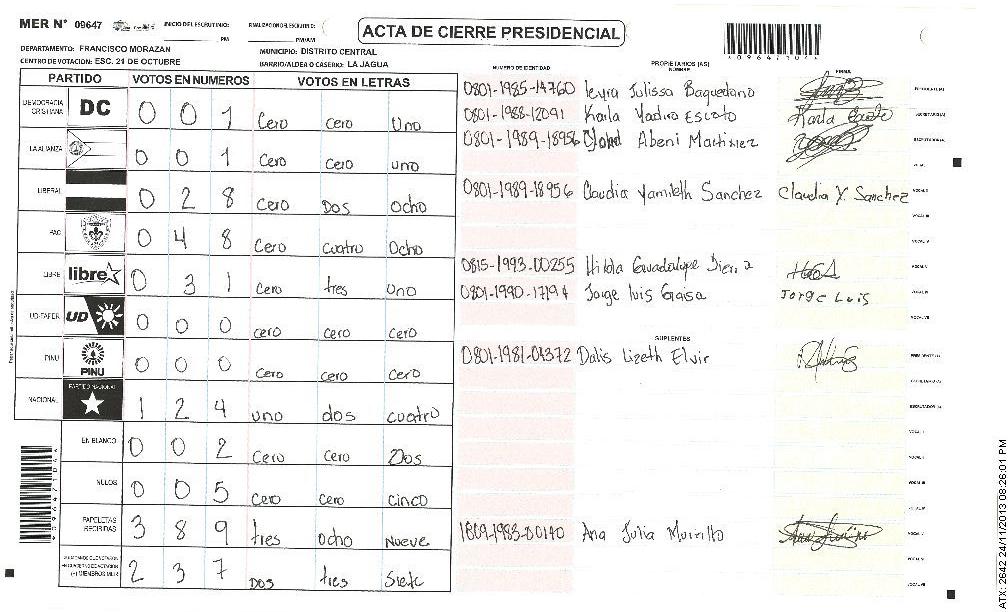 MER Nº 09647
INICIO DEL ESCRUTINIO:
PM
FINALIZACION DEL ESCRUTINIO:
PM/AM
ACTA DE CIERRE PRESIDENCIAL
DEPARTAMENTO: FRANCISCO MORAZAN
MUNICIPIO: DISTRITO CENTRAL
CENTRO DE VOTACION: ESC. 21 DE OCTUBRE
BARRIO/ALDEA O CASERIO: LA JAGUA
PARTIDO VOTOS EN NUMEROS VOTOS EN LETRAS
NUMERO DE IDENTIDAD
PROPIETARIOS (AS)
NOMBRE
FIRMA
DEMOCRACIA CRISTIANA DC 0 0 1 Cero cero Uno
LA ALIANZA 0 0 1 Cero Cero uno
LIBERAL 0 2 8 Cero Dos Ocho
PAC 0 4 8 Cero cuatro Ocho
LIBRE libre 0 3 1 Cero tres Uno
UD-FAPER UD 0 0 0 cero cero Cero
PINU PINU 0 0 0 Cero cero Cero
NACIONAL PARTIDO NACIONAL 1 2 4 uno dos cuatro
EN BLANCO 0 0 2 Cero Cero Dos
NULOS 0 0 5 Cero Cero Cinco
PAPELETAS RECIBIDAS 3 8 9 tres ocho Nueve
2 3 7 DOS tres Siete
(+) MIEMBROS MER
0801-1985-14760 Julissa Baquedano
0801-1988-12091 Karla Yadira Escoto Karla Escoto
0801-1989-18956 Abeni Martinez
0801-1989-18956 Claudia Yamileth Sanchez Claudia Y. Sanchez
0815-1993-00255 Guadalupe
0801-1990-17194 Jorge luis Jorge Luis
SUPLENTES
0801-1981-04372 Dalis Lizeth Elvir
1809-1983-00140 Ana Julia Murillo
ATX: 2642 24/11/2013 08:26:01 PM